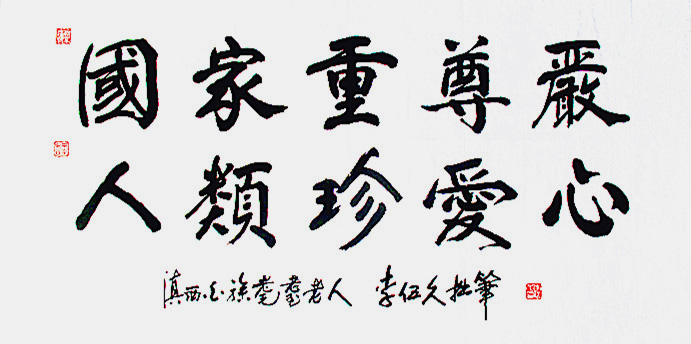 國家重尊嚴
人類珍愛心
滇西白族耄耋老人 李伍久拙筆